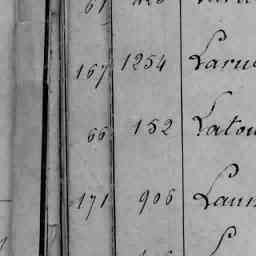 61
167 1254 Laru
66 152 Latou
171 906 Laun